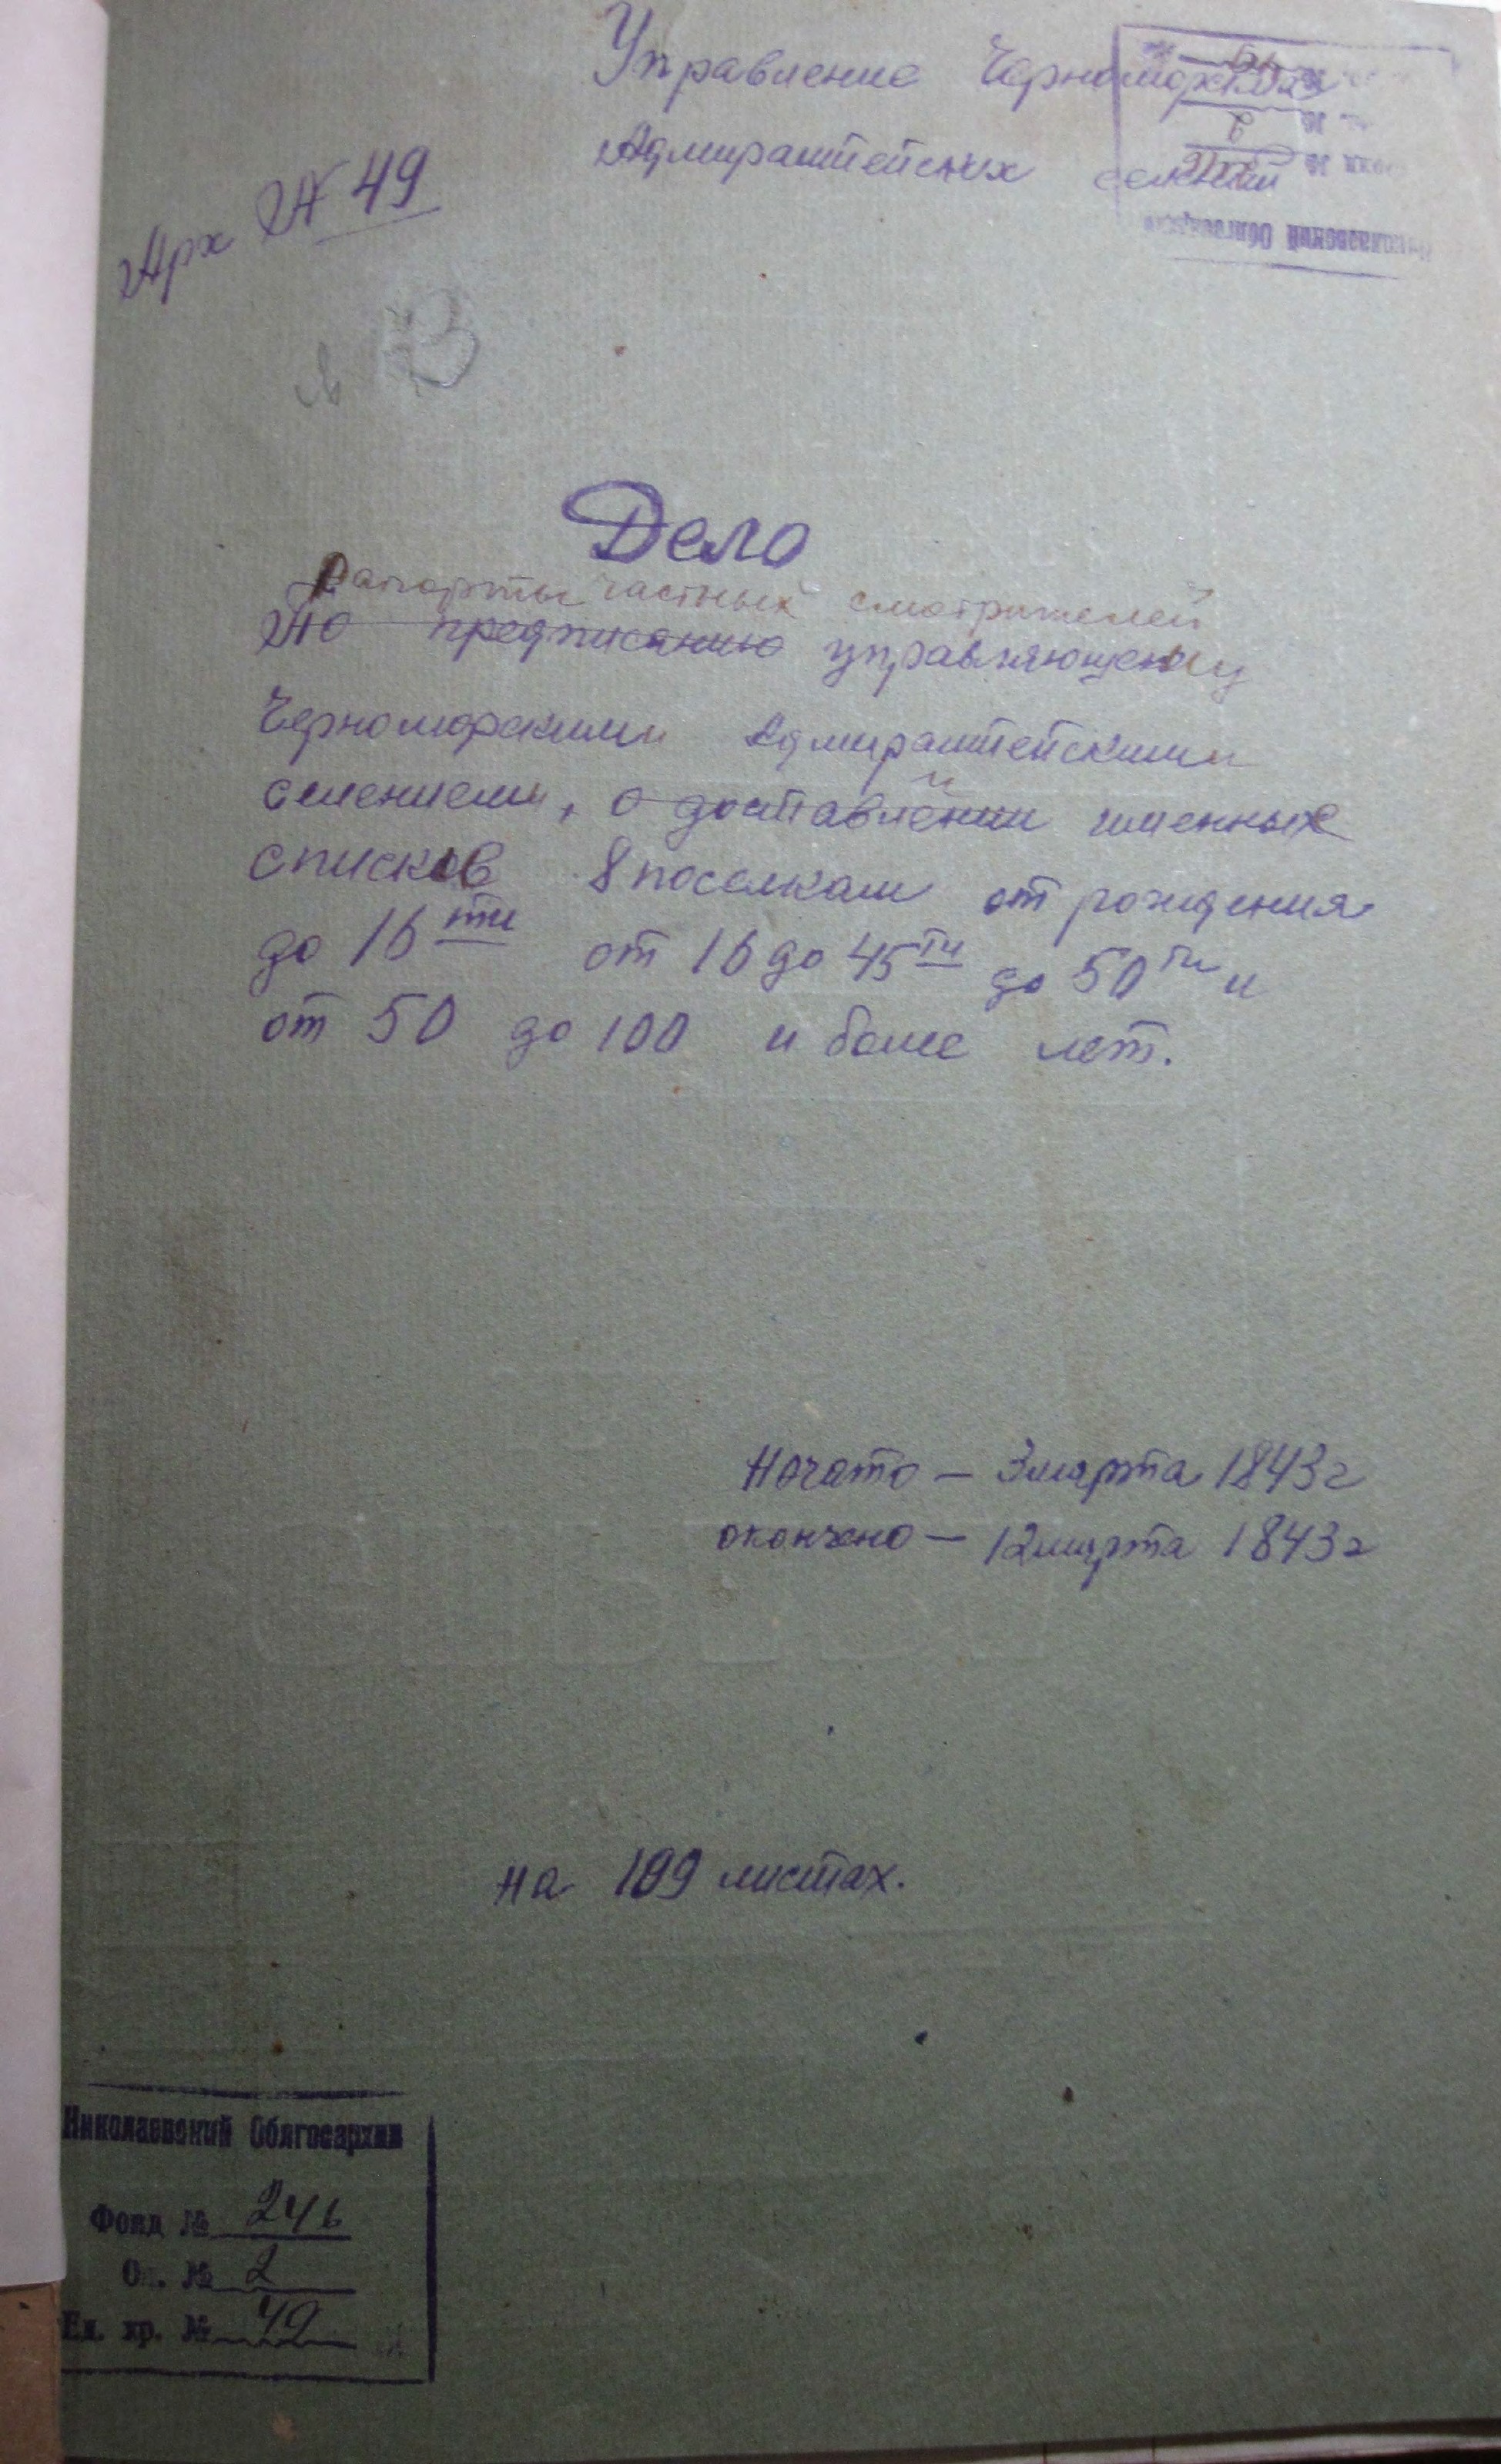 Управление Черноморских
Адмиралтейских селений
Арх № 49
№ 13
Дело
рапорты частных смотрителей
По предписанию управляющему
Черномарскими Адмиралтейскими
селениеми, о доставлении именных
списков 8 поселкам от рождения
до 16 ти от 16 до 45 ти до 50 ти и
от 50 до 100 и более лет.
Начато — 3 марта 1843 г
окончено — 12 марта 1843 г
на 199 листах.
Николаевский Облгосархив
Фонд № 246
Оп. № 2
Ед. хр. № 49